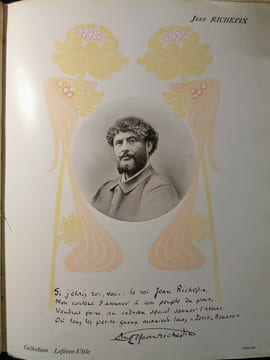 Jean RICHEPIN
Si j'étais roi, voici: le roi Jean Richepin,
Non content d'assurer à son peuple du pain,
Voudrait faire au cadran social sonner l'heure
Où tous les petits gueux auraient leurs
Jean Richepin
Collection Lefèvre-Utile